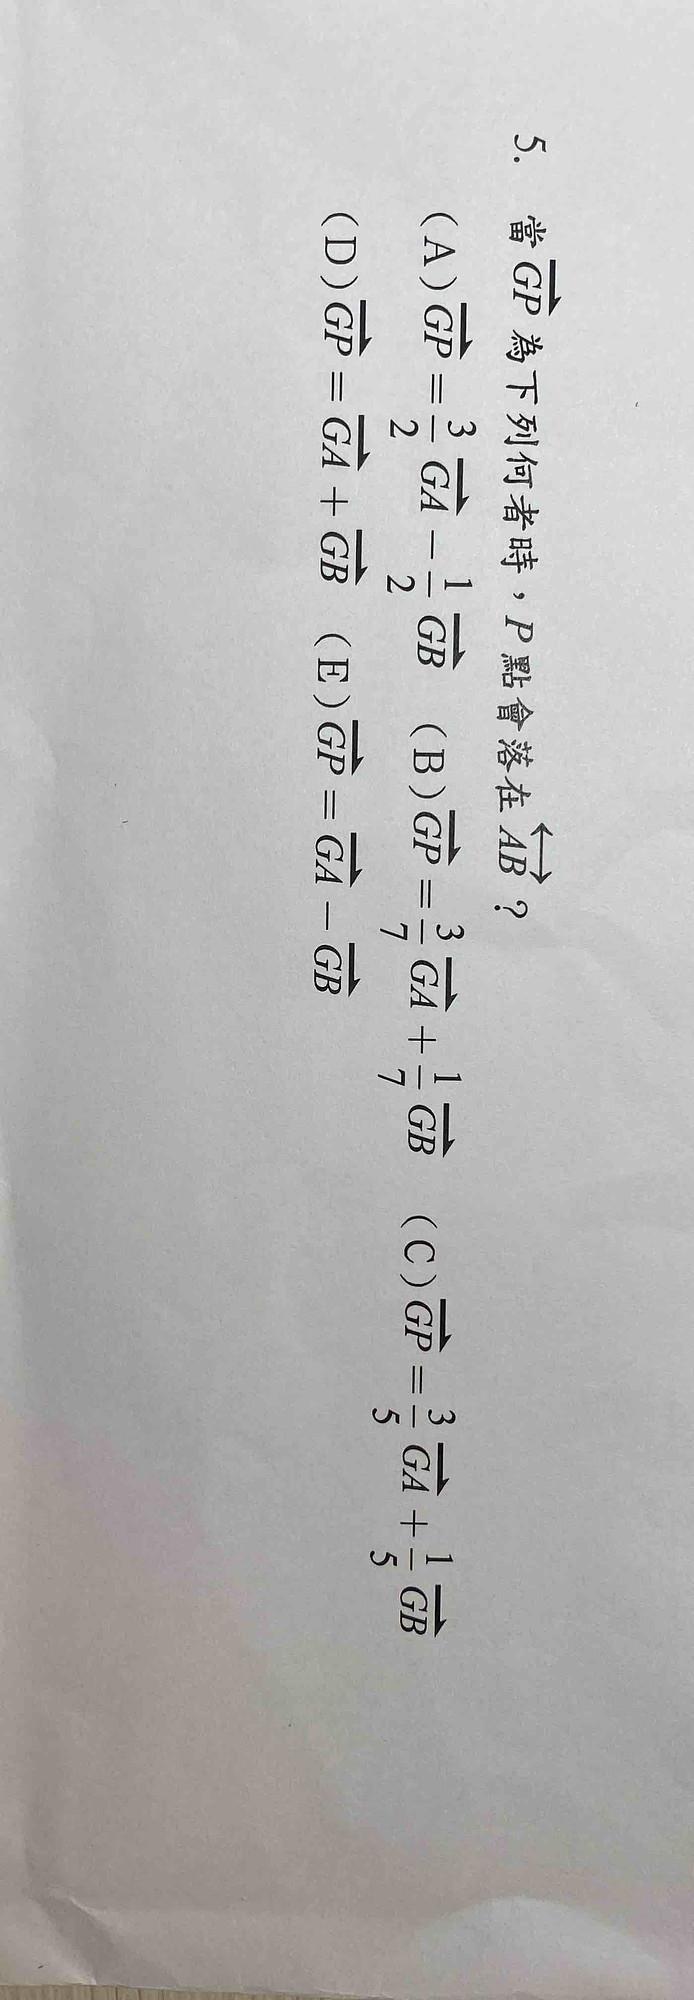 5. 當 $\overrightarrow{GP}$ 為下列何者時，P 點會落在 $\overleftrightarrow{AB}$？
(A) $\overrightarrow{GP}=\frac{3}{2}\overrightarrow{GA}-\frac{1}{2}\overrightarrow{GB}$ (B) $\overrightarrow{GP}=\frac{3}{7}\overrightarrow{GA}+\frac{1}{7}\overrightarrow{GB}$ (C) $\overrightarrow{GP}=\frac{3}{5}\overrightarrow{GA}+\frac{1}{5}\overrightarrow{GB}$
(D) $\overrightarrow{GP}=\overrightarrow{GA}+\overrightarrow{GB}$ (E) $\overrightarrow{GP}=\overrightarrow{GA}-\overrightarrow{GB}$